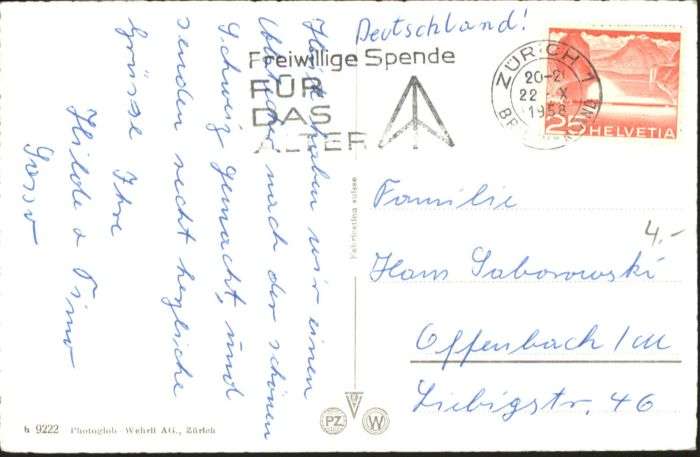 Heute haben wir einen
Abstecher nach der schönen
Schweiz gemacht, und
senden recht herzliche
Grüsse Ihre
Hilde & Timo
Sasso
Deutschland!
Freiwillige Spende
FÜR
DAS
ALTER
ZÜRICH 1
20-2
22.-X
1958
25 HELVETIA
Fabrication suisse
Familie
Hans Saborowski
4.-
Offenbach/M
Liebigstr. 46
PZ W
h 9222 Photoglob-Wehrli AG., Zürich